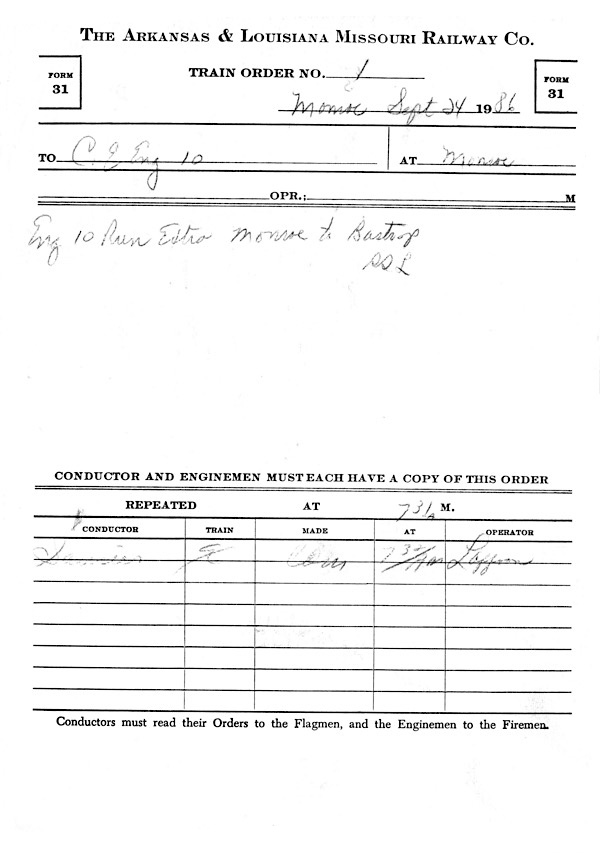 THE ARKANSAS & LOUISIANA MISSOURI RAILWAY CO.
FORM 31
TRAIN ORDER NO. 1
FORM 31
Monroe Sept 24 1986
TO C. & E Eng 10
AT Monroe
OPR.; M
Eng 10 Run Extra Monroe to Bastrop
CONDUCTOR AND ENGINEMEN MUST EACH HAVE A COPY OF THIS ORDER
REPEATED AT 731A M.
CONDUCTOR TRAIN MADE AT OPERATOR
Com
Conductors must read their Orders to the Flagmen, and the Enginemen to the Firemen.